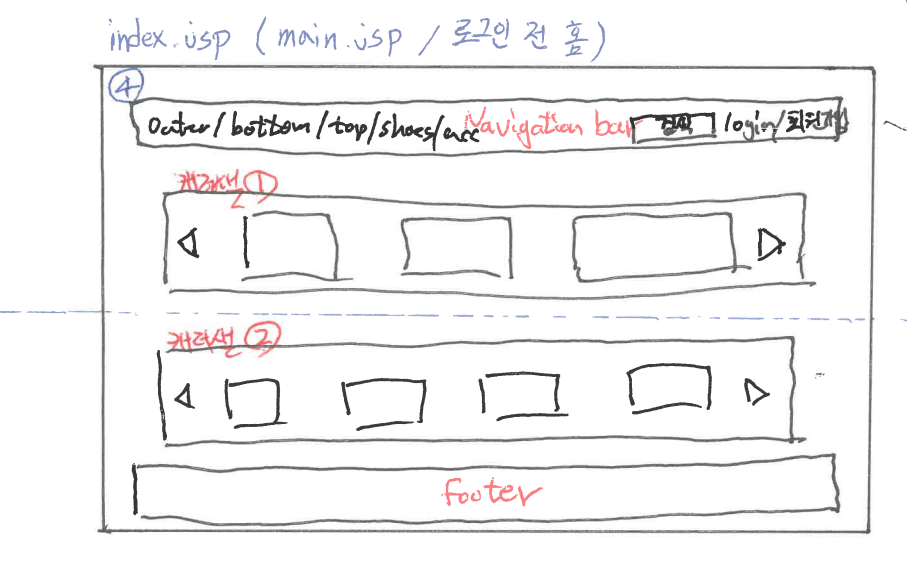 index.jsp (main.jsp / 로그인 전 홈)
④
Outer/bottom/top/shoes/acc Navigation bar 검색 login/회원가입
캐러셀 ①
캐러셀 ②
footer